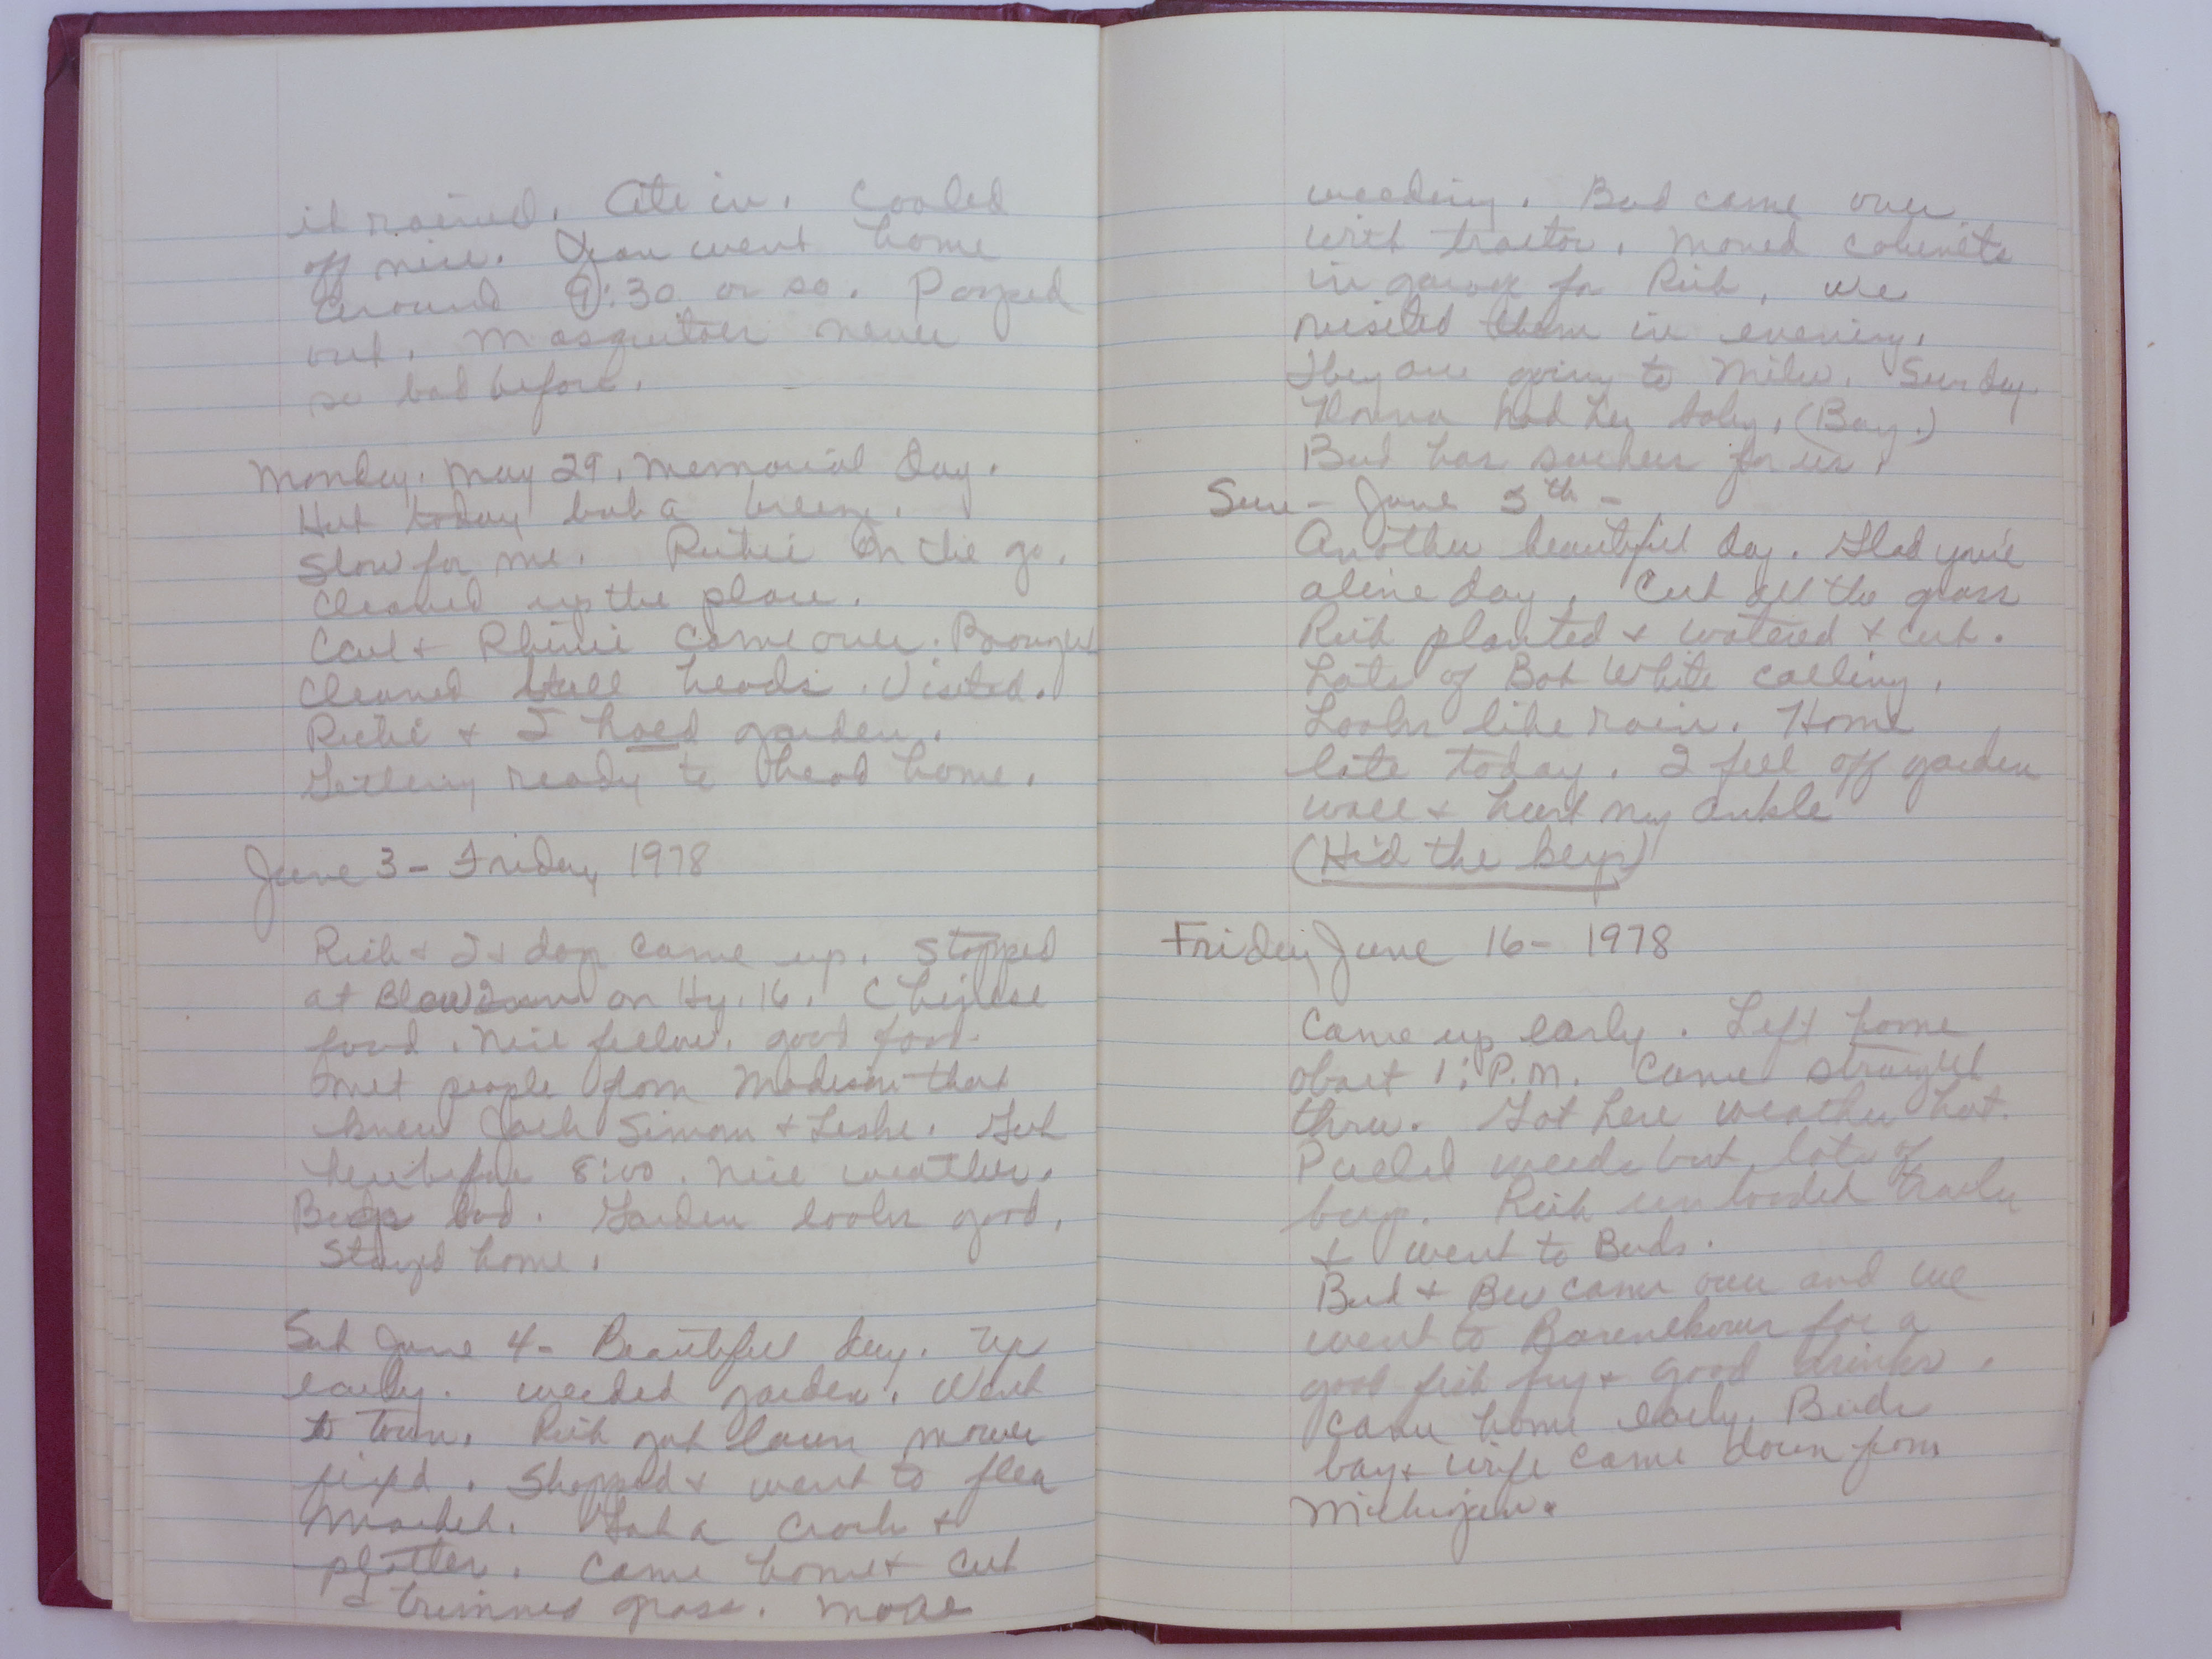 it rained. Ate in. Cooled
off nice. Jean went home
around 9:30 or so. Pooped
out. Mosquitoes never
so bad before.
Monday. May 29. Memorial Day.
Hot today but a breeze.
Slow for me. Richie on the go.
Cleaned up the place.
Carl + Rhinie came over. Brought
cleaned bull heads. Visited.
Richie + I hoed garden.
Getting ready to head home.
June 3 - Friday 1978
Rich + I + dog came up. Stopped
at on Hy. 16. Chinese
food. Nice fellow. good food.
met people from Madison that
knew Jack Simon + Leske. Got
here before 8:00. Nice weather.
Bugs bad. Garden looks good.
Stayed home.
Sat June 4 - Beautiful day. Up
early. weeded garden. Went
to town. Rich got lawn mower
fixed. Shopped + went to flea
market. Got a crock +
platter. Came home + cut
+ trimmed grass. More
weeding. Bud came over
with tractor. Moved cabinets
in garage for Rich. We
visited them in evening.
They are going to Milw. Sunday.
Donna had her baby. (Boy.)
Bud has suckers for us.
Sun - June 5th -
Another beautiful day. Glad you're
alive day. Cut all the grass
Rich planted + watered + cut.
Lots of Bob White calling.
Looks like rain. Home
late today. I fell off garden
wall + hurt my ankle
(Hid the keys)
Friday June 16 - 1978
Came up early. Left home
about 1: P.M. Came straight
thru. Got here weather hot.
Pulled weeds but lots of
bugs. Rich unloaded trailer
+ went to Buds.
Bud + Bev came over and we
went to for a
good fish fry + good drinks.
Came home early. Buds
boy + wife came down from
Michigan.